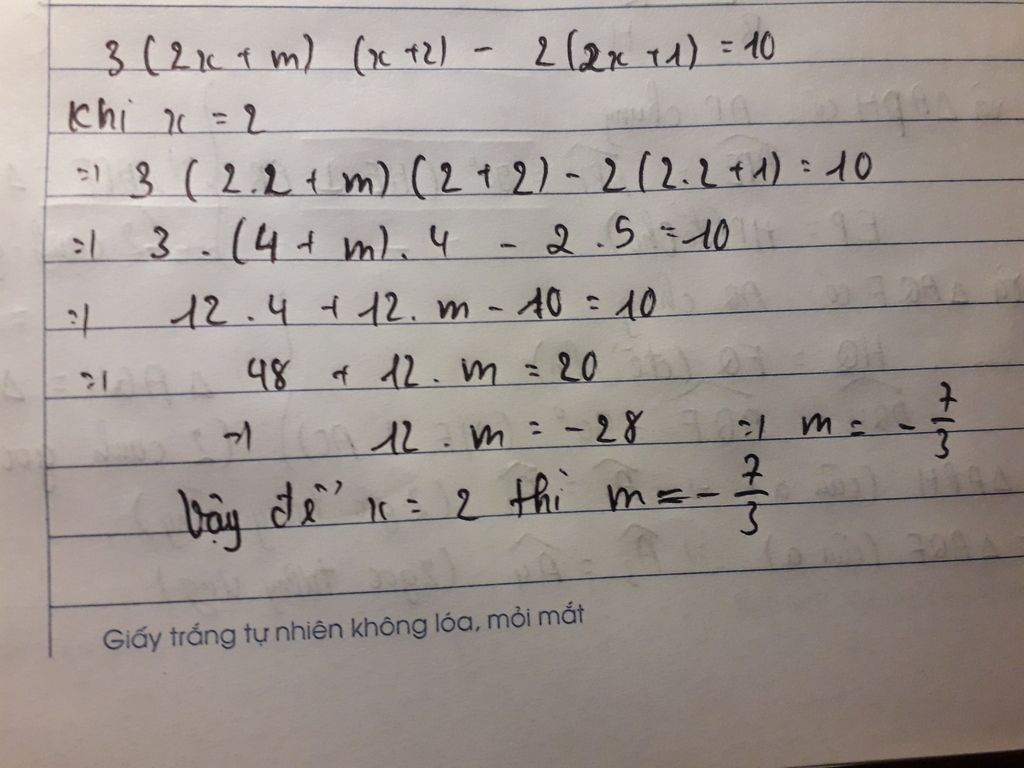 3 (2x + m) (x+2) - 2(2x+1) = 10
Khi x = 2
=> 3 (2.2 + m) (2+2) - 2(2.2+1) = 10
=> 3 . (4 + m) . 4 - 2 . 5 = 10
=> 12 . 4 + 12 . m - 10 = 10
=> 48 + 12 . m = 20
=> 12 . m = -28 => m = - 7/3
Vậy để x = 2 thì m = - 7/3
Giấy trắng tự nhiên không lóa, mỏi mắt